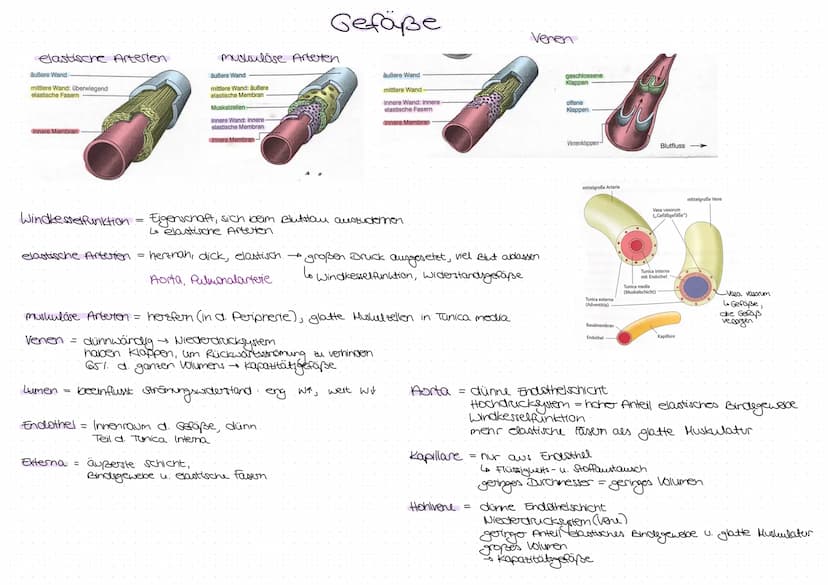 Gefäße
elastische Arterien
muskuläre Arterien
Venen
äußere Wand
mittlere Wand: überwiegend
elastische Fasern
innere Membran
äußere Wand
mittlere Wand: äußere
elastische Membran
Muskelzellen
innere Wand: innere
elastische Membran
innere Membran
äußere Wand
mittlere Wand
innere Wand: innere
elastische Fasern
innere Membran
geschlossene
Klappen
offene
Klappen
Venenklappen
Blutfluss
Windkesselfunktion = Eigenschaft, sich beim Blutstau auszudehnen
↳ elastische Arterien
elastische Arterien = herznah, dick, elastisch → großen Druck ausgesetzt, viel Blut ablassen
Aorta, Pulmonalarterie
↳ Windkesselfunktion, Widerstandsgefäße
muskuläre Arterien = herzfern (in d. Peripherie), glatte Muskelzellen in Tunica media
Venen = dünnwandig → Niederdrucksystem
haben Klappen, um Rückwärtsströmung zu verhindern
65% d. ganzen Volumens → Kapazitätsgefäße
Lumen = beeinflusst Strömungswiderstand · eng W↑, weit W↓
Endothel = Innenraum d. Gefäße, dünn
Teil d. Tunica Interna
Externa = äußerste Schicht,
Bindegewebe u. elastische Fasern
mittelgroße Arterie
mittelgroße Vene
Vasa vasorum
(„Gefäßgefäße")
Tunica interna
mit Endothel
Tunica media
(Muskelschicht)
Tunica externa
(Adventitia)
Basalmembran
Endothel
Kapillare
Vasa vasorum
↳ Gefäße,
die Gefäß
versorgen
Aorta = dünne Endothelschicht
Hochdrucksystem = hoher Anteil elastisches Bindegewebe
Windkesselfunktion
mehr elastische Fasern als glatte Muskulatur
Kapillare = nur aus Endothel
↳ Flüssigkeits- u. Stoffaustausch
geringes Durchmesser = geringes Volumen
Hohlvene = dünne Endothelschicht
Niederdrucksystem (Vene)
geringer Anteil elastisches Bindegewebe u. glatte Muskulatur
großes Volumen
→ Kapazitätsgefäße